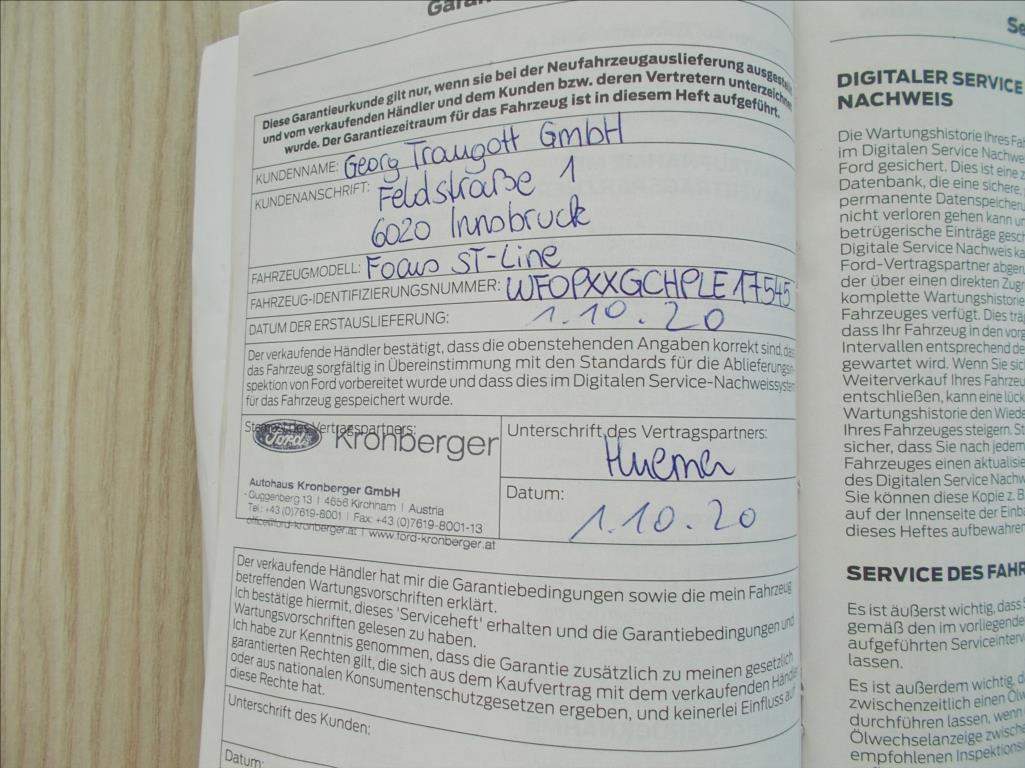 Diese Garantieurkunde gilt nur, wenn sie bei der Neufahrzeugauslieferung
und vom verkaufenden Händler und dem Kunden bzw. deren Vertretern
wurde. Der Garantiezeitraum für das Fahrzeug ist in diesem Heft aufgeführt.
KUNDENNAME: Georg Traugott GmbH
KUNDENANSCHRIFT: Feldstraße 1
6020 Innsbruck
FAHRZEUGMODELL: Focus ST-Line
FAHRZEUG-IDENTIFIZIERUNGSNUMMER: WF0PXXGCHPLE17545
DATUM DER ERSTAUSLIEFERUNG: 1.10.20
Der verkaufende Händler bestätigt, dass die obenstehenden Angaben korrekt sind,
das Fahrzeug sorgfältig in Übereinstimmung mit den Standards für die
spektion von Ford vorbereitet wurde und dass dies im Digitalen
für das Fahrzeug gespeichert wurde.
Ford Kronberger
Autohaus Kronberger GmbH
Guggenberg 13 | 4656 Kirchham | Austria
Tel.: +43 (0)7619-8001 | Fax: +43 (0)7619-8001-13
office@ford-kronberger.at | www.ford-kronberger.at
Unterschrift des Vertragspartners:
Datum:
1.10.20
Der verkaufende Händler hat mir die Garantiebedingungen sowie die mein Fahrzeug
betreffenden Wartungsvorschriften erklärt.
Ich bestätige hiermit, dieses 'Serviceheft' erhalten und die Garantiebedingungen und
Wartungsvorschriften gelesen zu haben.
Ich habe zur Kenntnis genommen, dass die Garantie zusätzlich zu meinen gesetzlich
garantierten Rechten gilt, die sich aus dem Kaufvertrag mit dem verkaufenden
oder aus nationalen Konsumentenschutzgesetzen ergeben, und keinerlei Einfluss auf
diese Rechte hat.
Unterschrift des Kunden:
Datum:
DIGITALER SERVICE
NACHWEIS
Die Wartungshistorie Ihres
im Digitalen Service
Ford gesichert. Dies ist eine
Datenbank, die eine sichere,
permanente
nicht verloren gehen kann
betrügerische Einträge
Digitale Service Nachweis
Ford-Vertragspartner
der über einen direkten
komplette Wartungshistorie
Fahrzeuges verfügt. Dies
dass Ihr Fahrzeug in den
Intervallen entsprechend
gewartet wird. Wenn Sie sich
Weiterverkauf Ihres
entschließen, kann eine
Wartungshistorie den
Ihres Fahrzeuges steigern.
sicher, dass Sie nach jedem
Fahrzeuges einen
des Digitalen Service
Sie können diese Kopie z. B.
auf der Innenseite der
dieses Heftes aufbewahren
SERVICE DES
Es ist äußerst wichtig, dass
gemäß den im
aufgeführten
lassen.
Es ist außerdem wichtig,
zwischenzeitlich einen
durchführen lassen, wenn
Ölwechselanzeige
empfohlenen